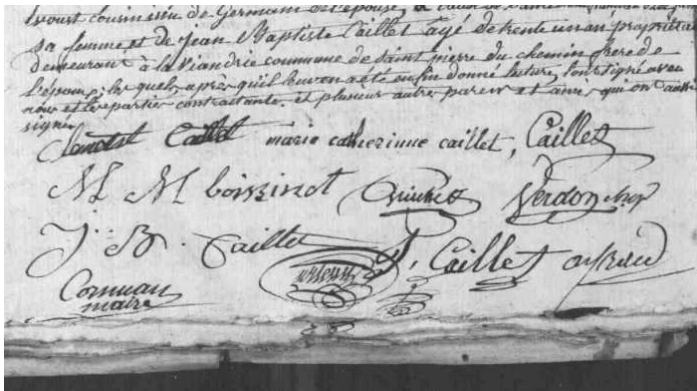 cousin de Germain de l'épouse,
sa femme et de Jean Baptiste Caillet agé de trente un an propriétaire
demeurant à la viandrie commune de saint pierre du chemin frere de
l'epoux; les quels après qu'il leur en a été enfin donné lecture, l'ont signé avec
nous et les parties contractante. et plusieur autre parens et amis qui ont aussi
signé
Caillet marie catherinne caillet, Caillet
M M boissinot Verdon
J. B. Caillet
Caillet
Cornuau
maire